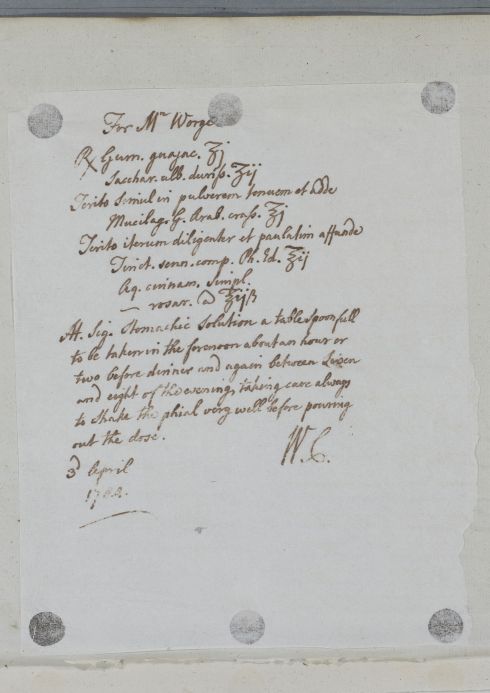 For Mr Worge
℞ Gum. guajac. ʒj
Sacchar. alb. duriss. ʒij
Terito simul in pulverem tenuem et adde
Mucilag. G. Arab. crass. ʒj
Terito iterum diligenter et paulatim affunde
Tinct. senn. comp. Ph. Ed. ʒij
Aq. cinnam. simpl.
— rosar. a ʒijß
M. Sig. Stomachic Solution a tablespoonfull
to be taken in the forenoon about an hour or
two before dinner and again between Seven
and eight of the evening, taking care always
to shake the phial very well before pouring
out the dose.
W. C.
3d April